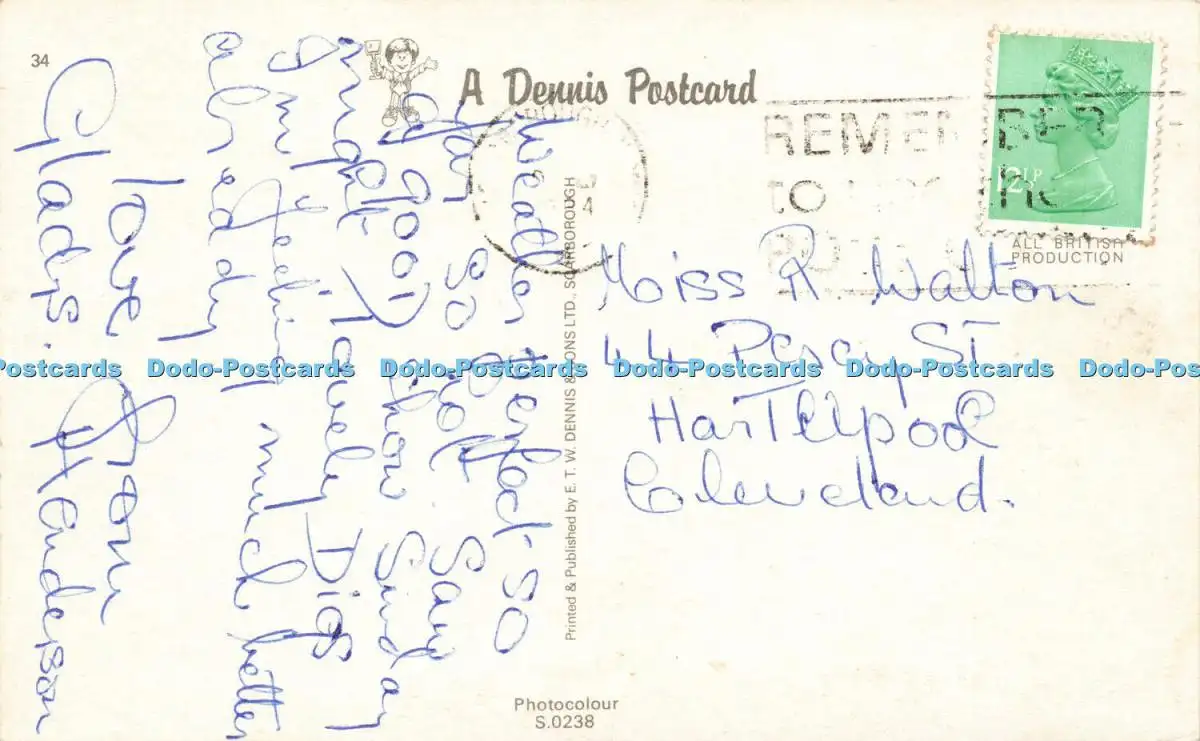 34
A Dennis Postcard
REMEMBER
to
ALL BRITISH
PRODUCTION
12½P
Weather perfect so
far so hot Say
good show Sunday
night lovely Digs
am feeling much better
already
love from
Gladys. Henderson
Printed & Published by E. T. W. DENNIS & SONS LTD., SCARBOROUGH
Miss R Walton
44 Percy St
Hartlepool
Cleveland.
Dodo-Postcards Dodo-Postcards Dodo-Postcards Dodo-Postcards
Photocolour
S.0238